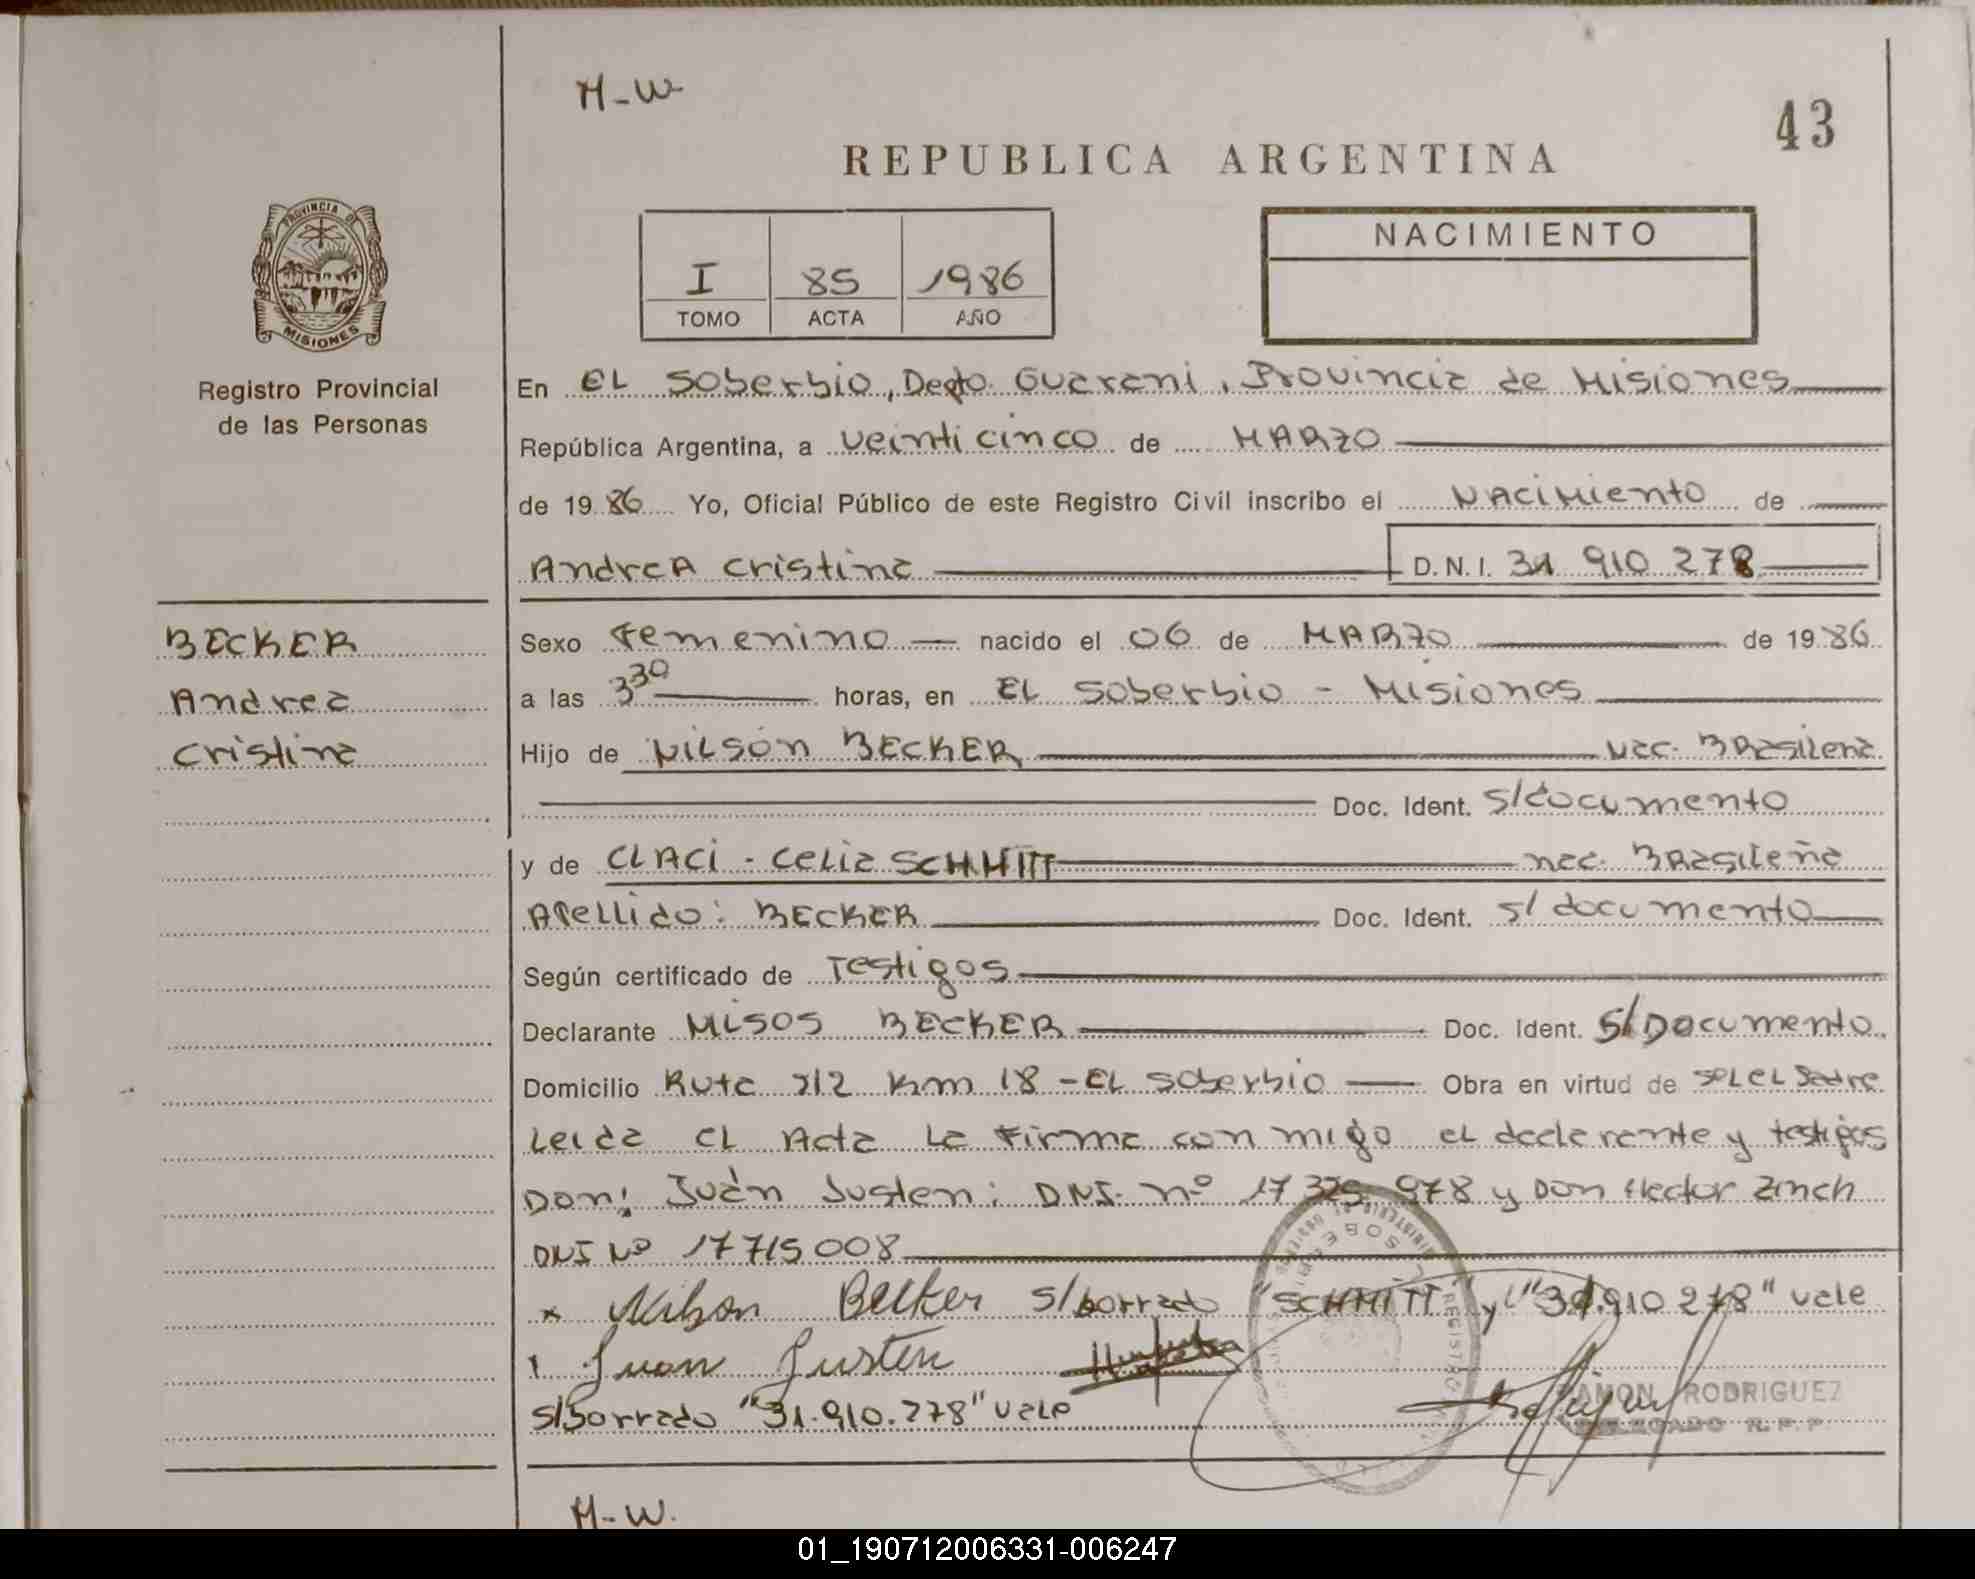 M-W
43
REPUBLICA ARGENTINA
I 85 1986
TOMO ACTA AÑO
NACIMIENTO
PROVINCIA DE
MISIONES
Registro Provincial
de las Personas
En EL Soberbio, Depto. Guarani, Provincia de Misiones
República Argentina, a veinticinco de MARZO
de 1986 Yo, Oficial Público de este Registro Civil inscribo el NACIMIENTO de
Andrea Cristina D.N.I. 31 910 278
BECKER
Andrea
Cristina
Sexo Femenino nacido el 06 de MARZO de 1986
a las 3 30 horas, en EL Soberbio - Misiones
Hijo de NILSON BECKER Nac. Brasilena
Doc. Ident. S/documento
y de CLACI - Celia SCHMITT nac. Brasileña
Apellido: BECKER Doc. Ident. S/ documento
Según certificado de Testigos
Declarante BECKER Doc. Ident. S/Documento
Domicilio Ruta 212 Km 18 - EL Soberbio Obra en virtud de
Leida el Acta la firma con migo el declarante y testigos
Don: Juan Justen: D.N.I. nº 17 325 978 y Don Hector
DNI Nº 17715008
Becker S/borrado "SCHMITT" y "31.910 278" vale
Juan Justen
S/Borrado "31.910.278" vale
RAMON RODRIGUEZ
DELEGADO R.P.P.
M-W.
01_190712006331-006247